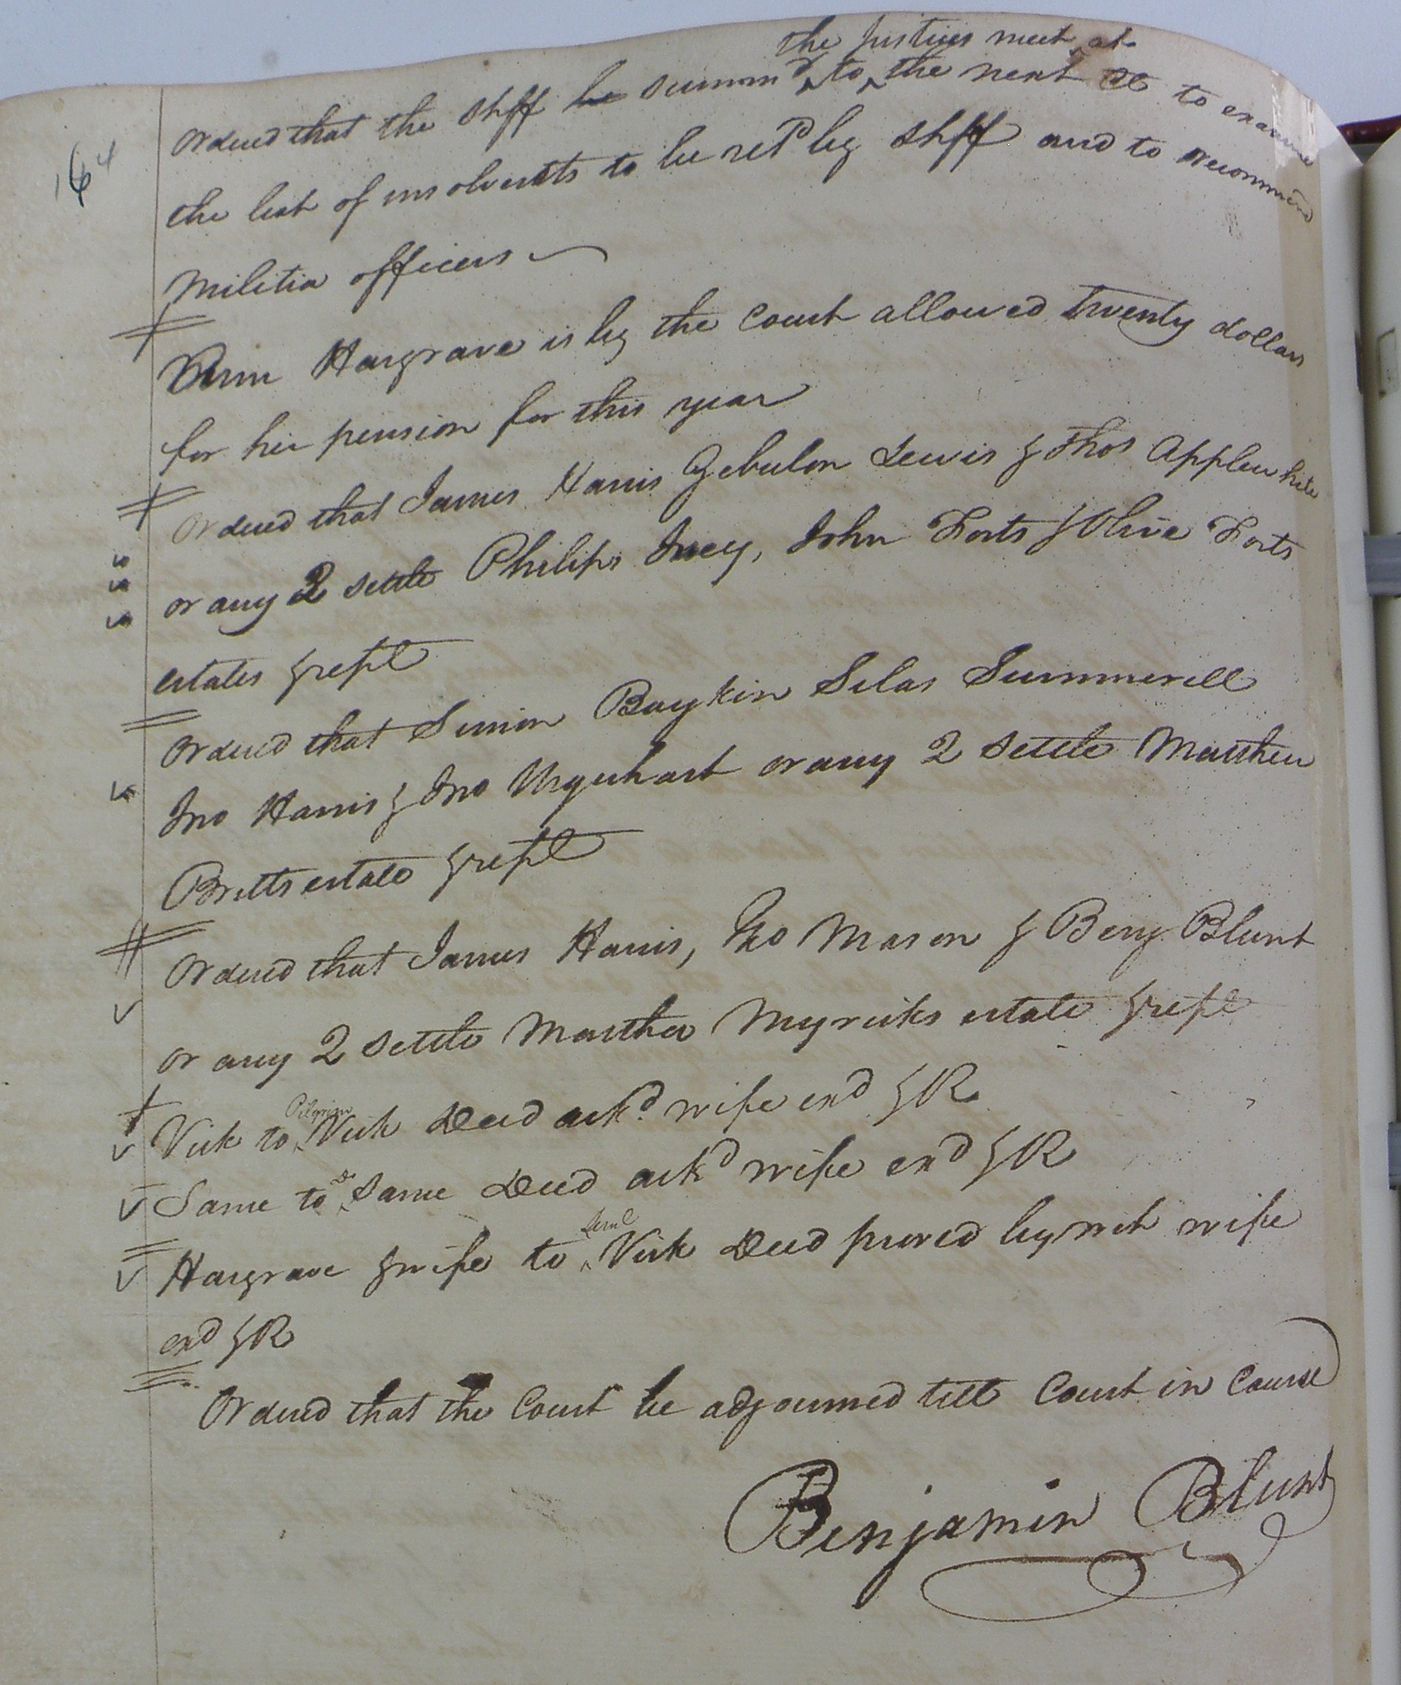 164
the justices meet at
Ordered that the Shff be summd to the next Ct to examine
the list of insolvents to be retd by Shff and to recommend
Militia officers
Ann Hargrave is by the Court allowed Twenty dollars
for her pension for this year
Ordered that James Harris Zebulon Lewis & Thos Applewhite
or any 2 settle Philips Ivey, John Forts & Olive Forts
estates & rept
Ordered that Simon Boykin Silas Summerell
Jno Harris & Jno Urquhart or any 2 settle Matthew
Britts estate & rept
Ordered that James Harris, Jno Mason & Benj Blunt
or any 2 settle Martha Myricks estate & rept
Pilgrim
Vick to Vick Deed ackd wife exd & R
Same to Same Deed ackd wife exd & R
Hargrave & wife to Vick Deed proved by wit wife
exd & R
Ordered that the Court be adjourned till Court in Course
Benjamin Blunt